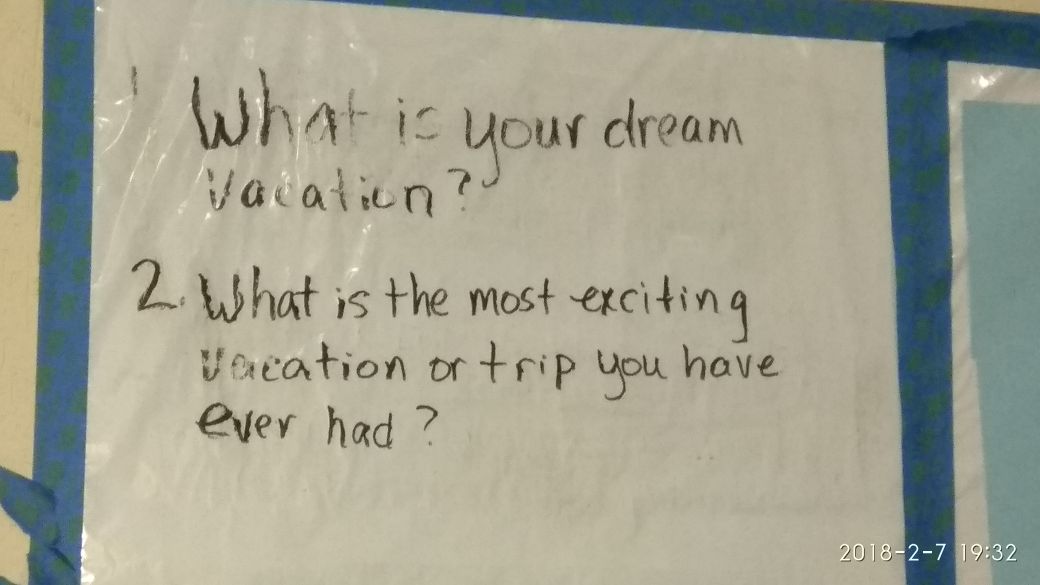 1 What is your dream
vacation?
2. What is the most exciting
vacation or trip you have
ever had?
2018-2-7 19:32